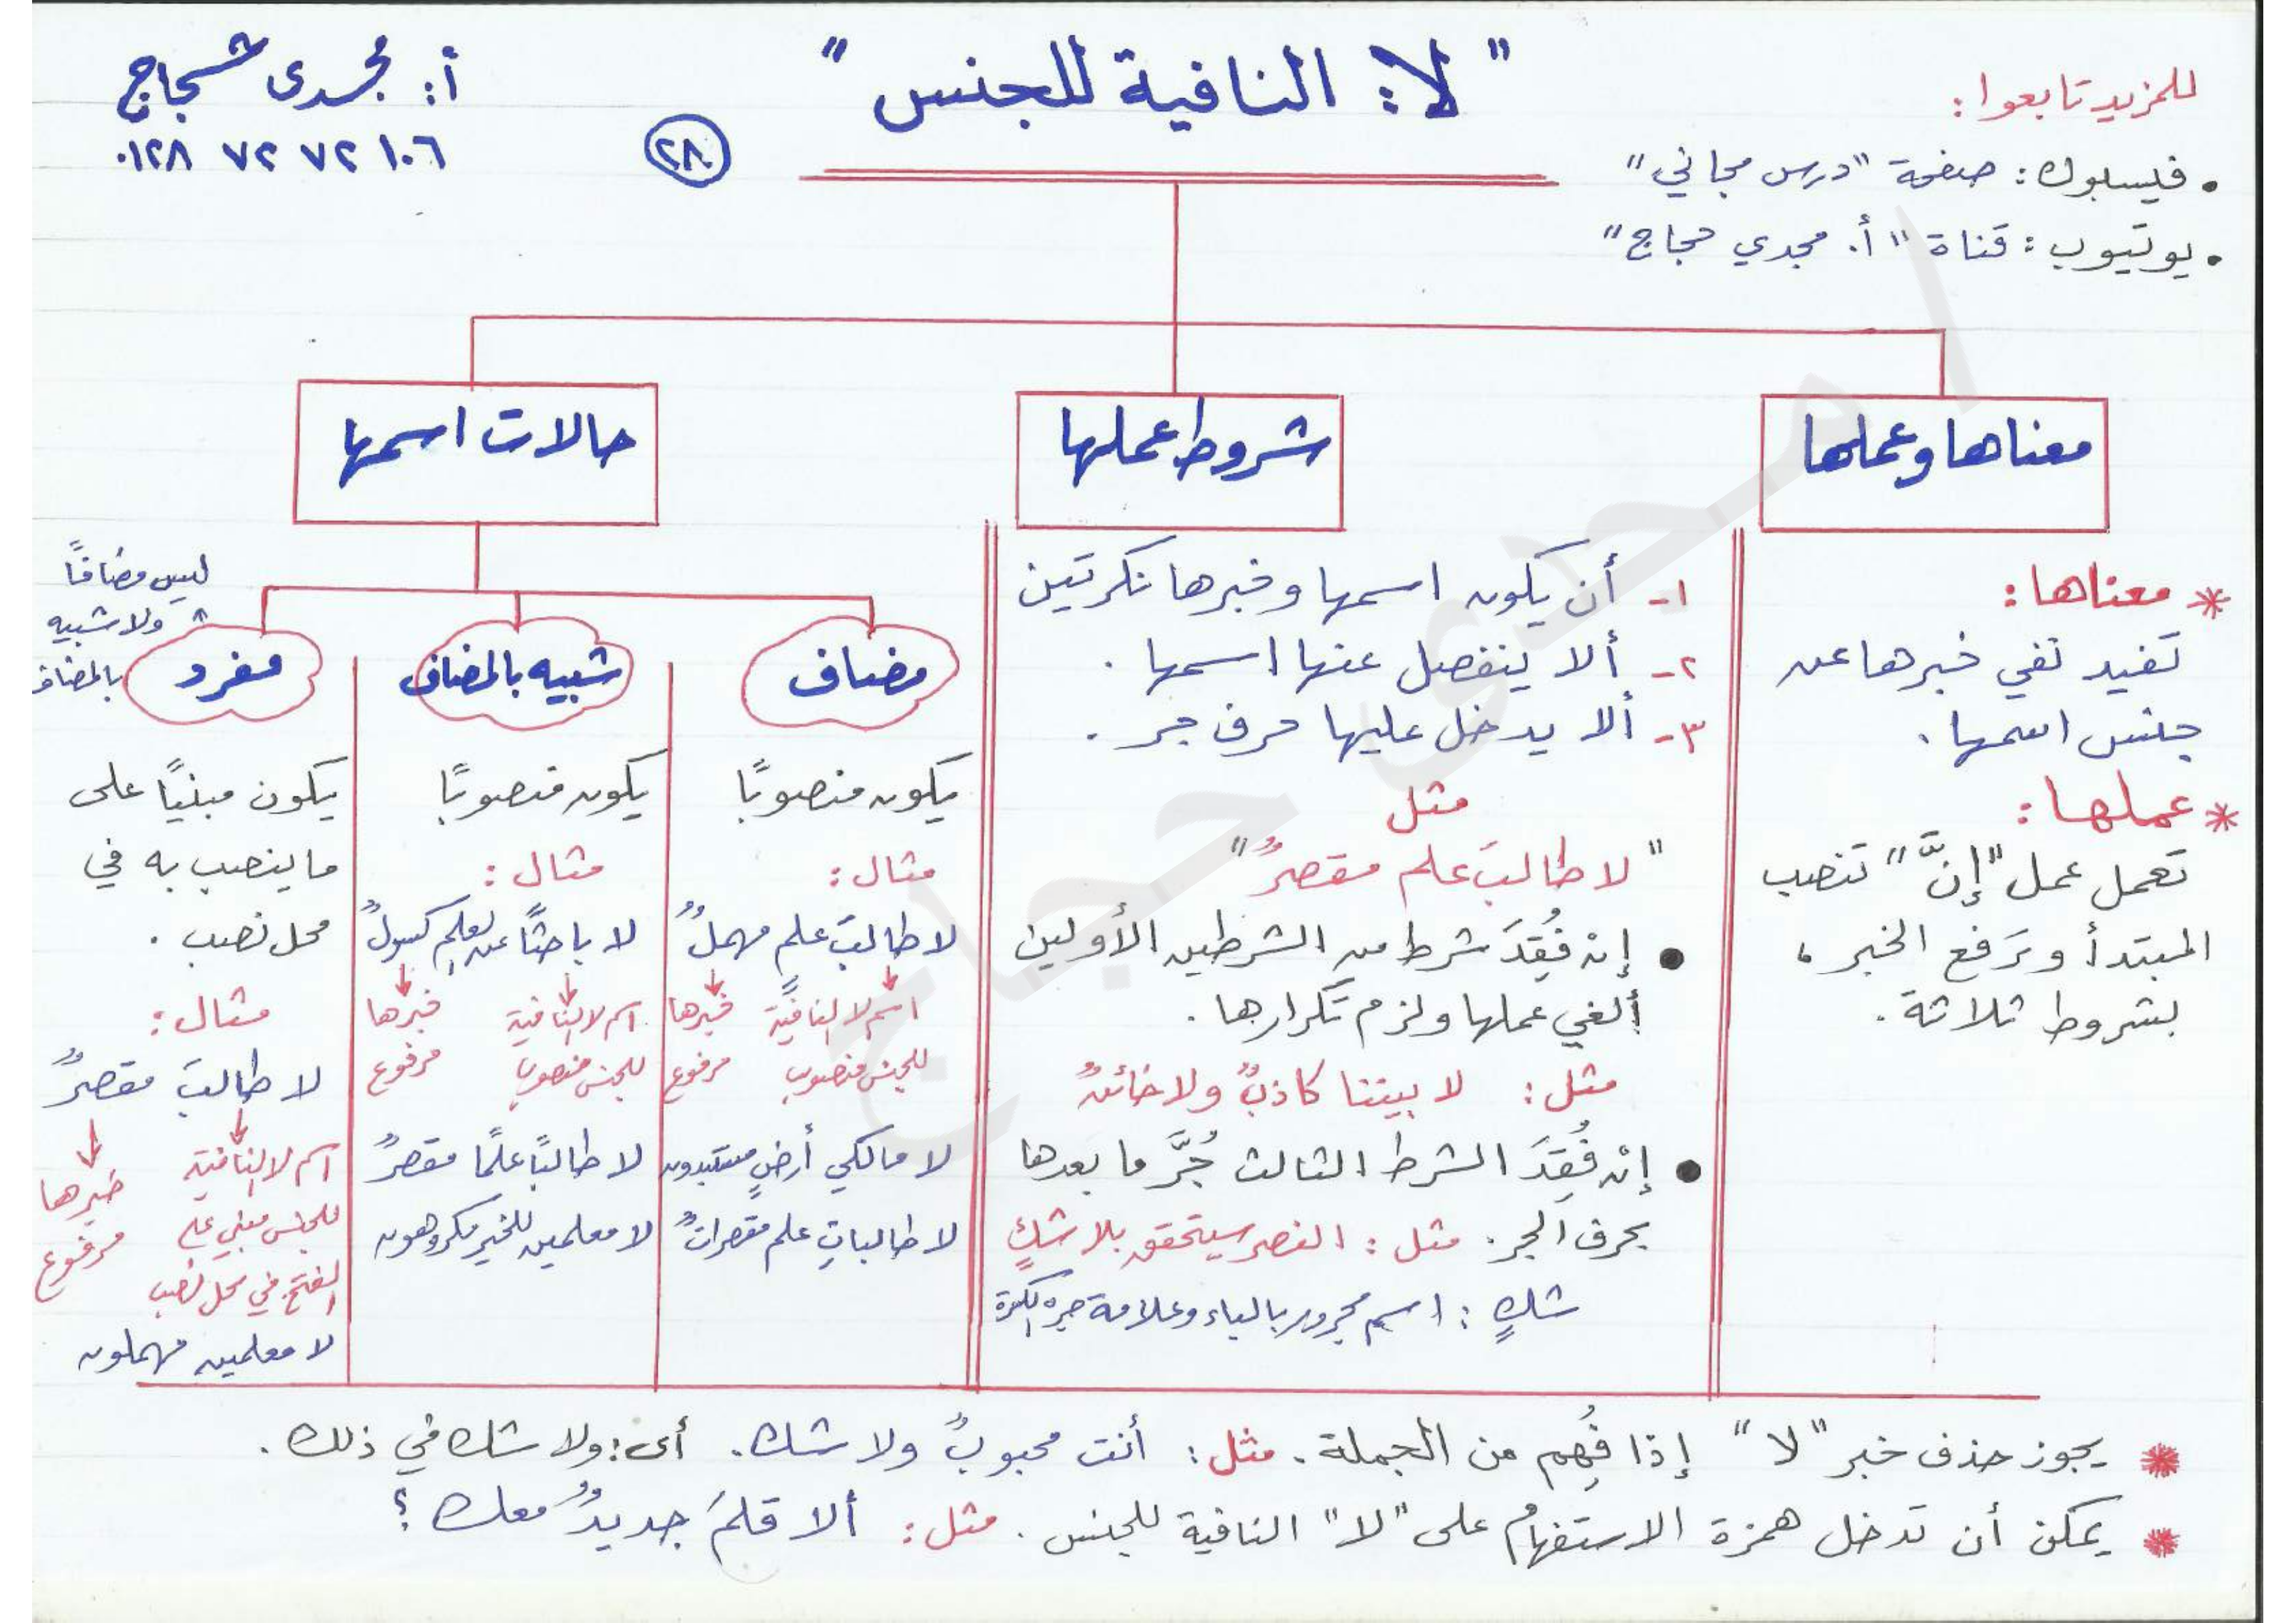 " لا: النافية للجنس "
أ: مجدى حجاج
٠١٢٨ ٧٢ ٧٢ ١٠٦
٢٨
للمزيد تابعوا:
• فيسبوك: صفحة "درس مجاني"
• يوتيوب: قناة "أ. مجدي حجاج"
معناها وعملها
* معناها:
تفيد نفي خبرها عن
جنس اسمها.
* عملها:
تعمل عمل "إنَّ" تنصب
المبتدأ وترفع الخبر،
بشروط ثلاثة.
شروط عملها
١- أن يكون اسمها وخبرها نكرتين
٢- ألا ينفصل عنها اسمها.
٣- ألا يدخل عليها حرف جر.
مثل
"لا طالبَ علم مقصرٌ"
• إن فُقِدَ شرط من الشرطين الأولين
ألغي عملها ولزم تكرارها.
مثل: لا بيننا كاذبٌ ولا خائنٌ
• إن فُقِدَ الشرط الثالث جُرَّ ما بعدها
بحرف الجر. مثل: النصر سيتحقق بلا شكٍ
شكٍ: اسم مجرور بالباء وعلامة جره الكسرة
حالات اسمها
مضاف
يكون منصوبًا
مثال:
لا طالبَ علمٍ مهملٌ
اسم لا النافية خبرها
للجنس منصوب مرفوع
لا مالكي أرضٍ مستبدون
لا طالباتِ علم مقصراتٌ
شبيه بالمضاف
يكون منصوبًا
مثال:
لا باحثًا عن علمٍ كسولٌ
اسم لا النافية خبرها
للجنس منصوب مرفوع
لا طالبًا علمًا مقصرٌ
لا معلمين للخير مكروهون
ليس مضافًا
ولا شبيه
بالمضاف
مفرد
يكون مبنيًا على
ما ينصب به في
محل نصب.
مثال:
لا طالبَ مقصرٌ
اسم لا النافية خبرها
للجنس مبني على مرفوع
الفتح في محل نصب
لا معلمين مهملون
* يجوز حذف خبر "لا" إذا فُهِم من الجملة. مثل: أنت محبوبٌ ولا شك. أى: ولا شك في ذلك.
* يمكن أن تدخل همزة الاستفهام على "لا" النافية للجنس. مثل: ألا قلمَ جديدٌ معك؟
أ/ مجدى حجاج